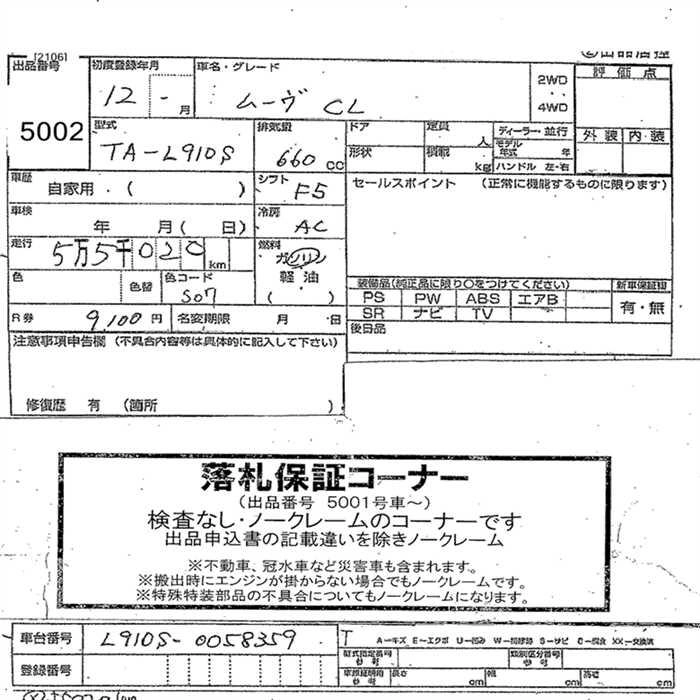 [2106]
出品番号 初度登録年月 車名・グレード
2WD
・・
4WD
評価点
12 - 月 ムーヴ CL
5002
型式 排気量 ドア 定員 人 ディーラー・並行 外装 内装
TA-L910S 660 cc 形状 積載 kg モデル年式 年
ハンドル 左・右
車歴 自家用・( ) シフト F5 セールスポイント (正常に機能するものに限ります)
車検 年 月( 日) 冷房 AC
走行 5万5千020 km 燃料 ガソリン
軽油
( )
色 色替 色コード S07
装備品(純正品に限り○をつけてください) 新車保証書
PS PW ABS エアB 有・無
SR ナビ TV
R券 9,100円 名変期限 月 日 後日品
注意事項申告欄 (不具合内容等は具体的に記入して下さい)
修復歴 有 (箇所 )
落札保証コーナー
(出品番号 5001号車~)
検査なし・ノークレームのコーナーです
出品申込書の記載違いを除きノークレーム
※不動車、冠水車など災害車も含まれます。
※搬出時にエンジンが掛からない場合でもノークレームです。
※特殊特装部品の不具合についてもノークレームになります。
車台番号 L910S-0058359 T A-キズ E-エクボ U-凹み S-サビ
型式指定番号 類別区分番号
登録番号 長さ cm 幅 cm 高さ cm